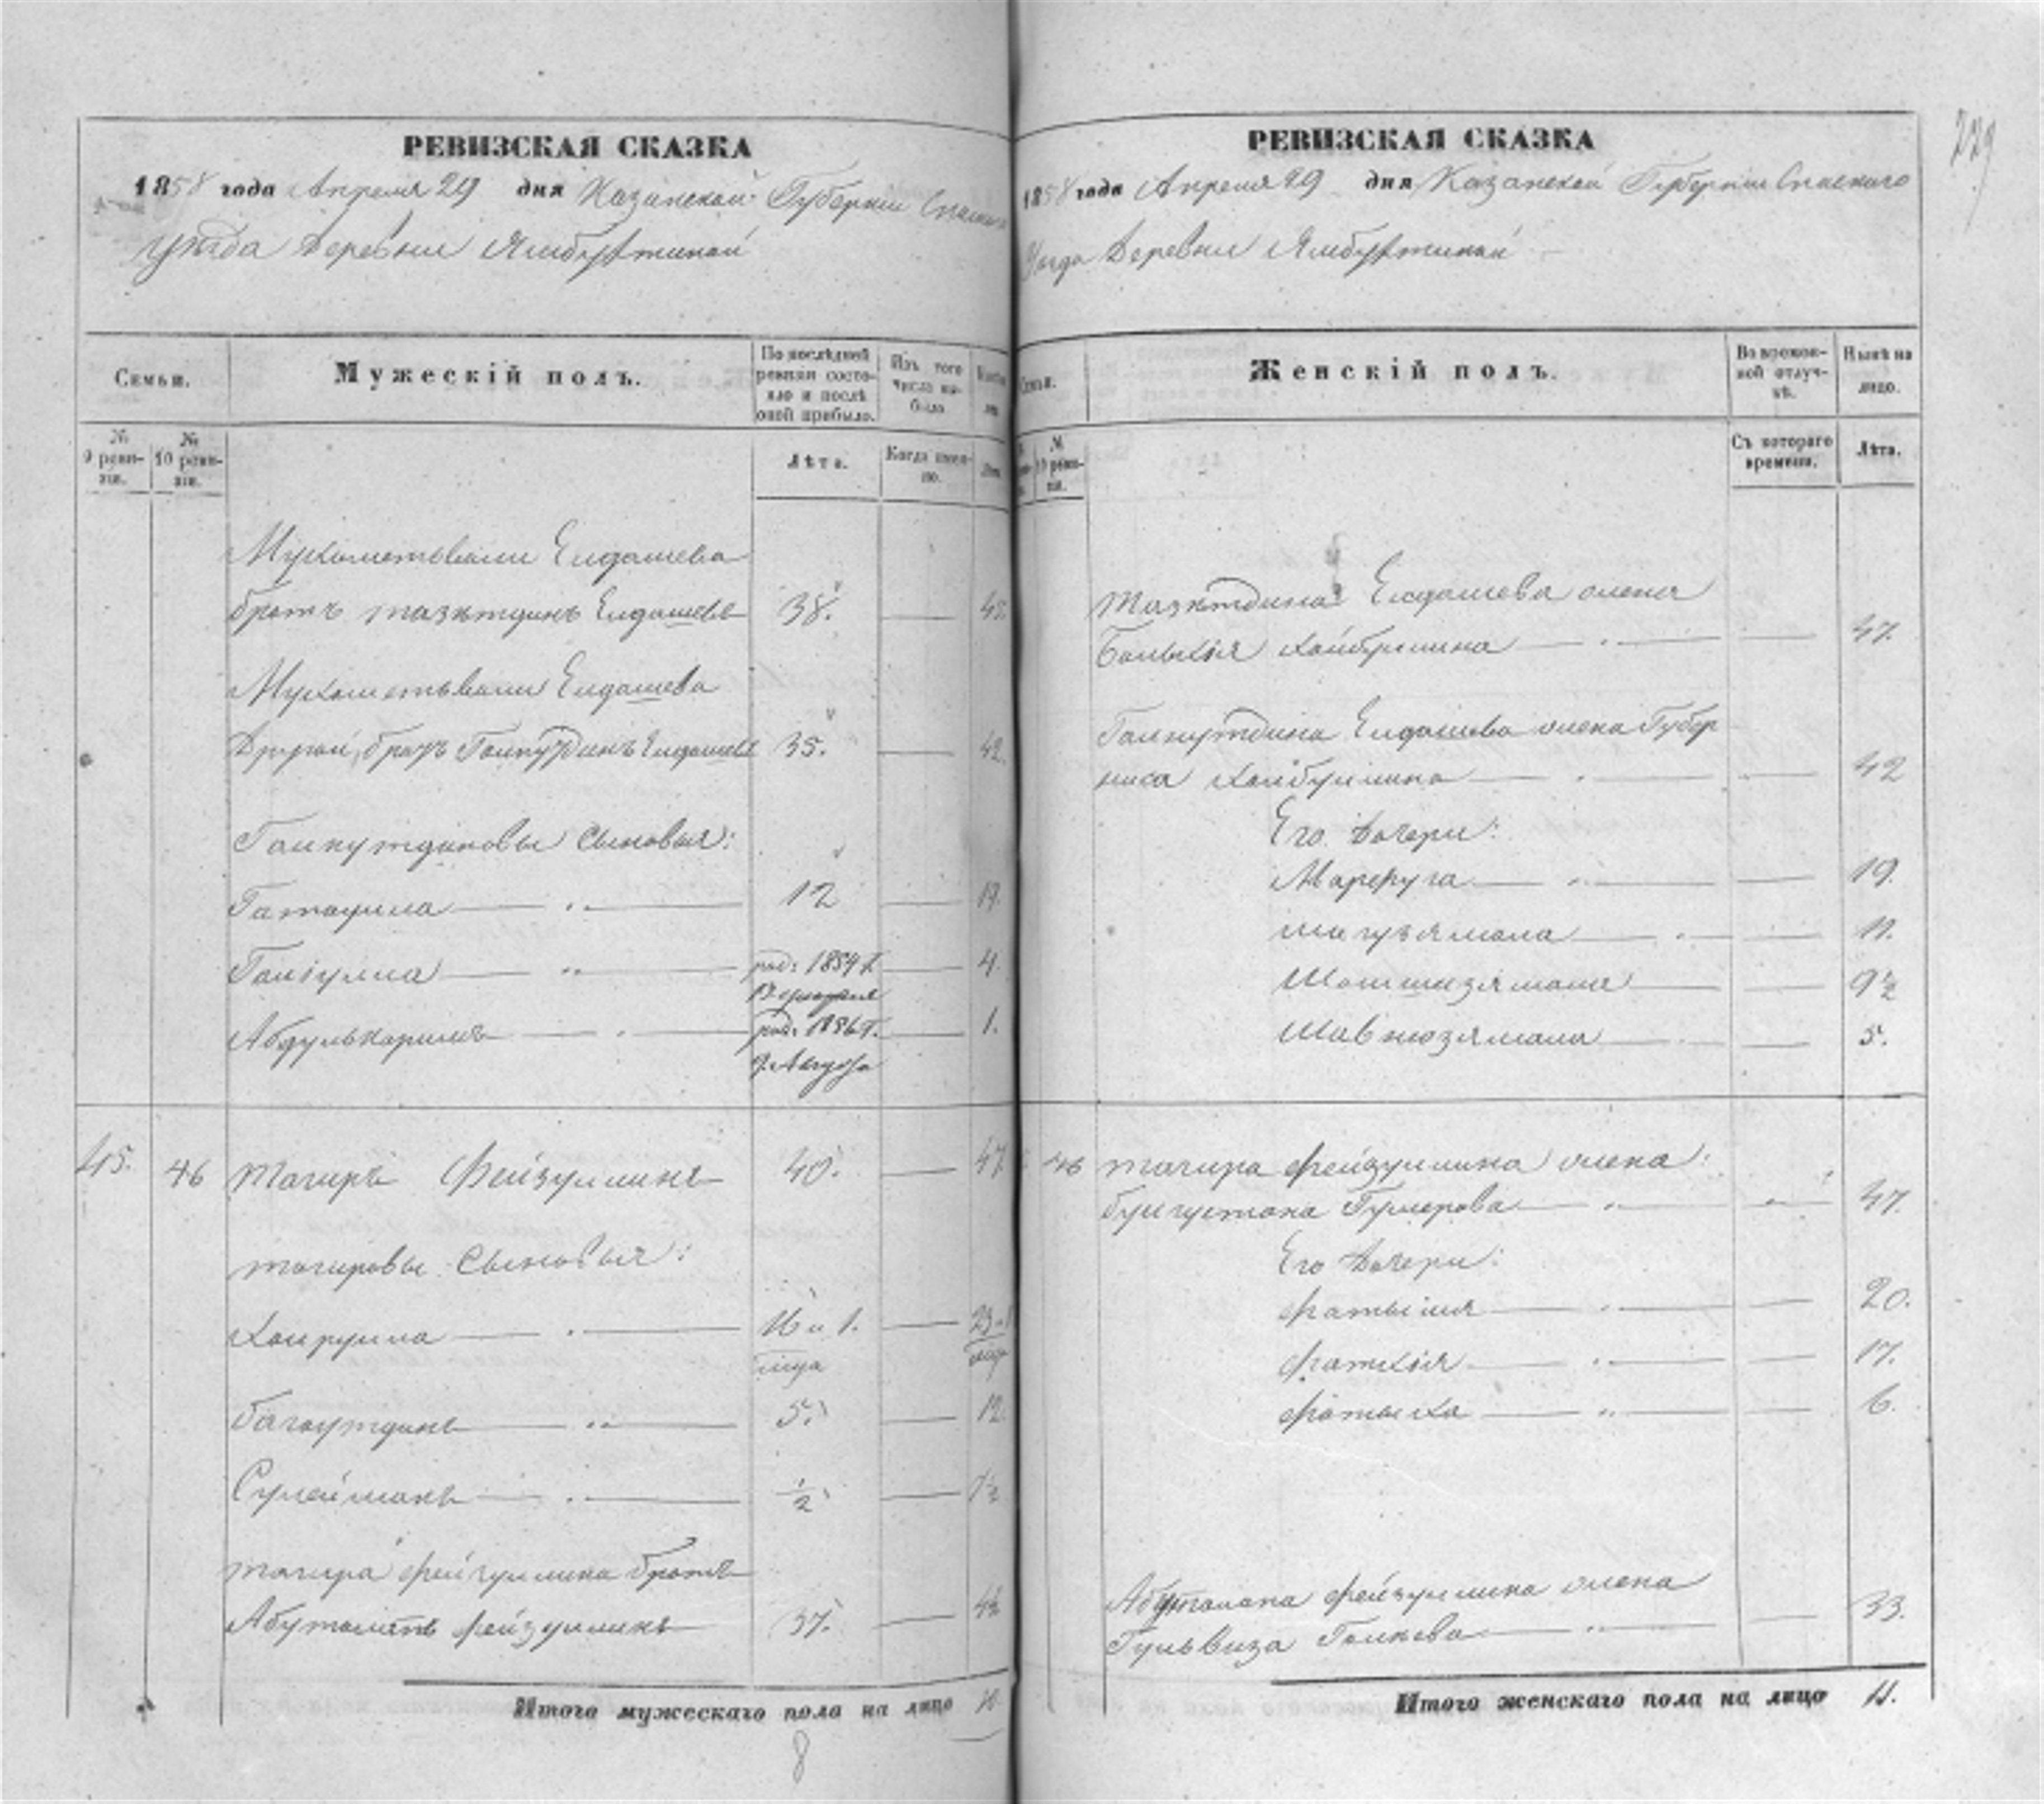 229
РЕВИЗСКАЯ СКАЗКА
1858 года Апреля 29 дня Казанской Губернiи
уѣзда Деревни Ямбухтиной
Семьи.
Мужескiй полъ.
По послѣдней ревизiи состояло и послѣ оной прибыло.
Изъ того числа выбыло.
№ 9 ревизiи.
№ 10 ревизiи.
Лѣта.
Когда именно.
Мухаметьвали Елдашева
братъ Тазетдинъ Елдашевъ 38. 45.
Мухаметьвали Елдашева
Другой братъ Галкутдинъ Елдашевъ 35. 42.
Галкутдиновы сыновья:
Гатаулла 12 19.
Галiулла род: 1854 г. 4.
Абдулькаримъ род: 1856 г. 1.
9. Августа
45. 46 Тагиръ Фейзуллинъ 40. 47
Тагировы сыновья:
Хайрулла 16 и 1. 23 и 1
мѣсяца
Багаутдинъ 5. 12
Сулейманъ ½ 7½
Тагира Фейзуллина братъ
Абуталипъ Фейзуллинъ 37. 44
Итого мужескаго пола на лицо 10.
8
РЕВИЗСКАЯ СКАЗКА
1858 года Апреля 29 дня Казанской Губернiи Спаскаго
Уѣзда Деревни Ямбухтиной
Женскiй полъ.
Во временной отлучкѣ.
Нынѣ на лицо.
№ 10 ревизiи.
Съ котораго времени.
Лѣта.
Тазетдина Елдашева жена
Хайбуллина 47.
Галкутдина Елдашева жена Губер
ниса Хайбуллина 42
Его дочери:
Марфуга 19.
Магузямала 11.
Шамшизямала 9½
Шавнюзямала 5.
46 Тагира Фейзуллина жена:
Булгустана Гумерова 47.
Его дочери:
Фатыйма 20.
Фатхiя 17.
Фатыха 6.
Абуталипа Фейзуллина жена
Гульвиза Галиева 33.
Итого женскаго пола на лицо 11.